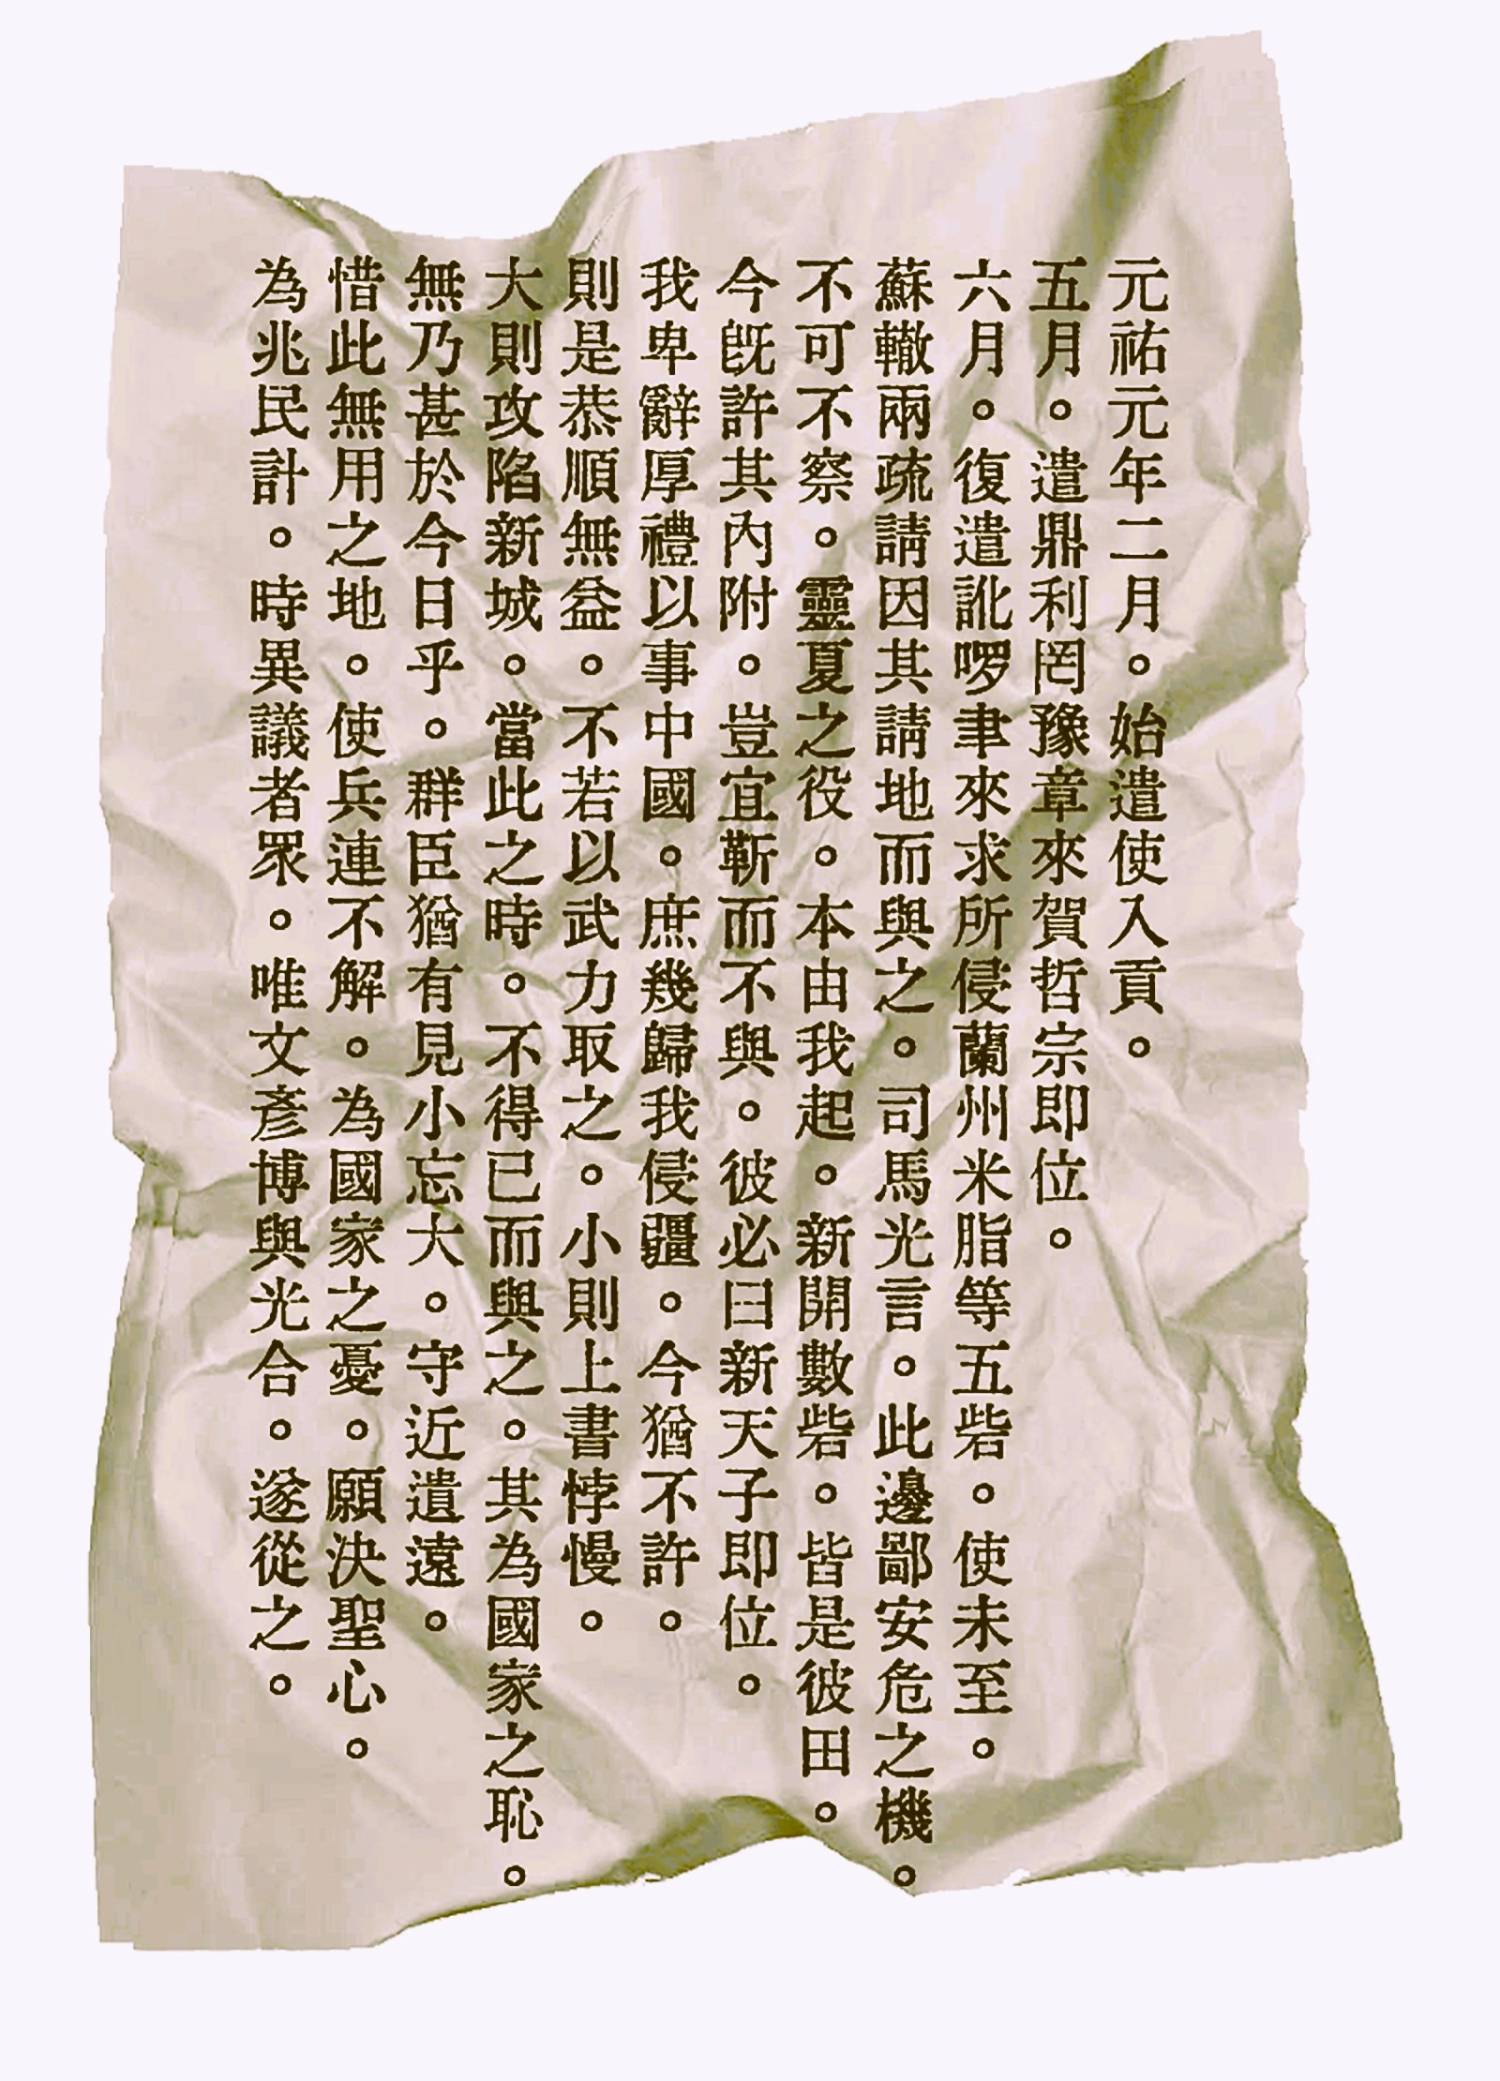 元祐元年二月。始遣使入貢。
五月。遣鼎利罔豫章來賀哲宗即位。
六月。復遣訛啰聿來求所侵蘭州米脂等五砦。使未至。
蘇轍兩疏請因其請地而與之。司馬光言。此邊鄙安危之機。
不可不察。靈夏之役。本由我起。新開數砦。皆是彼田。
今既許其內附。豈宜靳而不與。彼必曰新天子即位。
我卑辭厚禮以事中國。庶幾歸我侵疆。今猶不許。
則是恭順無益。不若以武力取之。小則上書悖慢。
大則攻陷新城。當此之時。不得已而與之。其為國家之恥。
無乃甚於今日乎。群臣猶有見小忘大。守近遺遠。
惜此無用之地。使兵連不解。為國家之憂。願決聖心。
為兆民計。時異議者眾。唯文彥博與光合。遂從之。